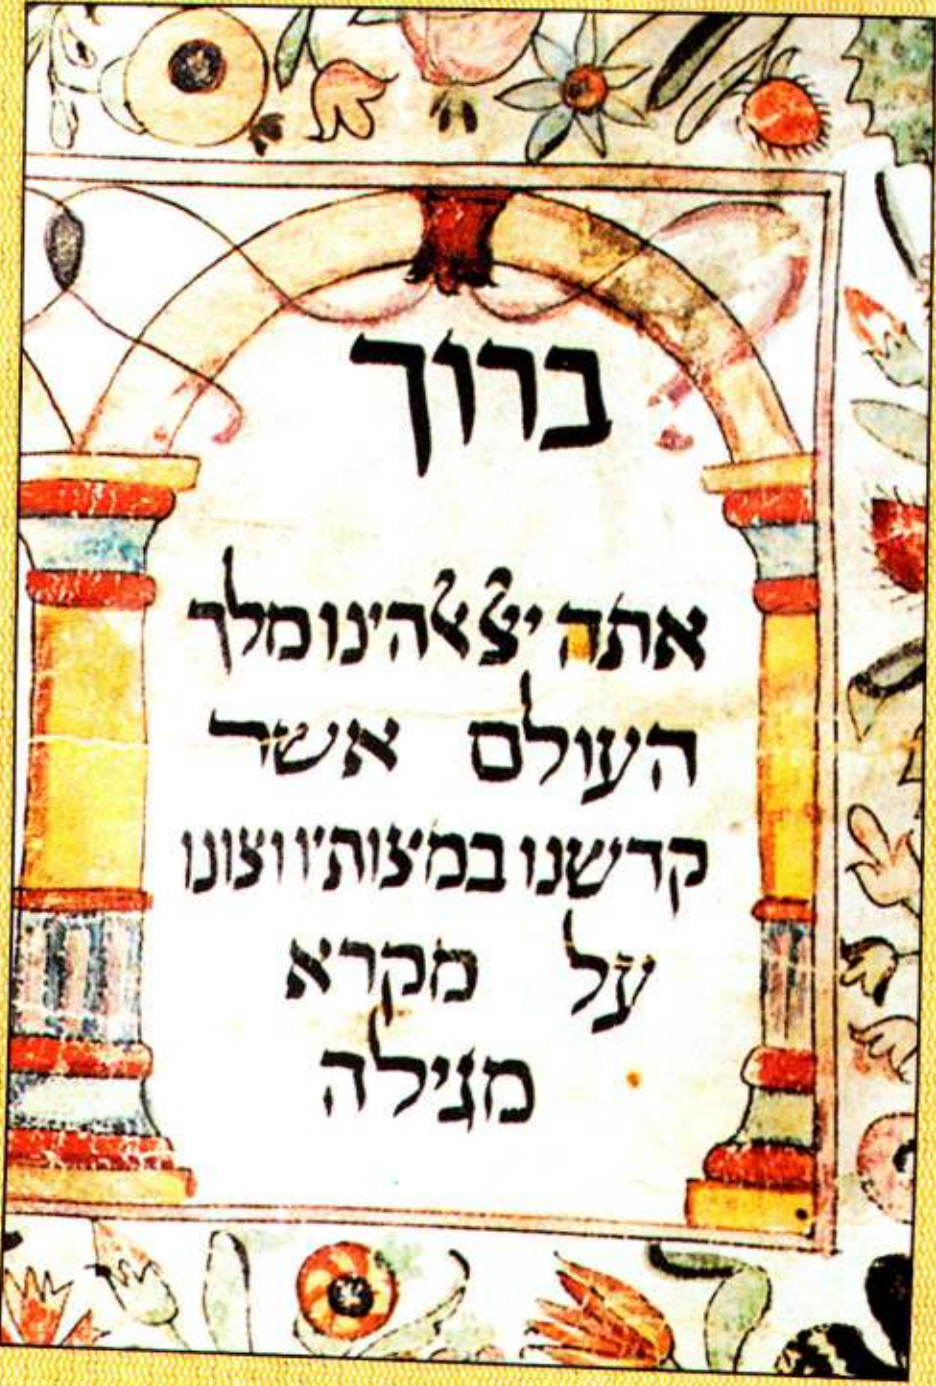 ברוך
אתה ﭏהינו מלך
העולם אשר
קדשנו במצותיו וצונו
על מקרא
מגילה